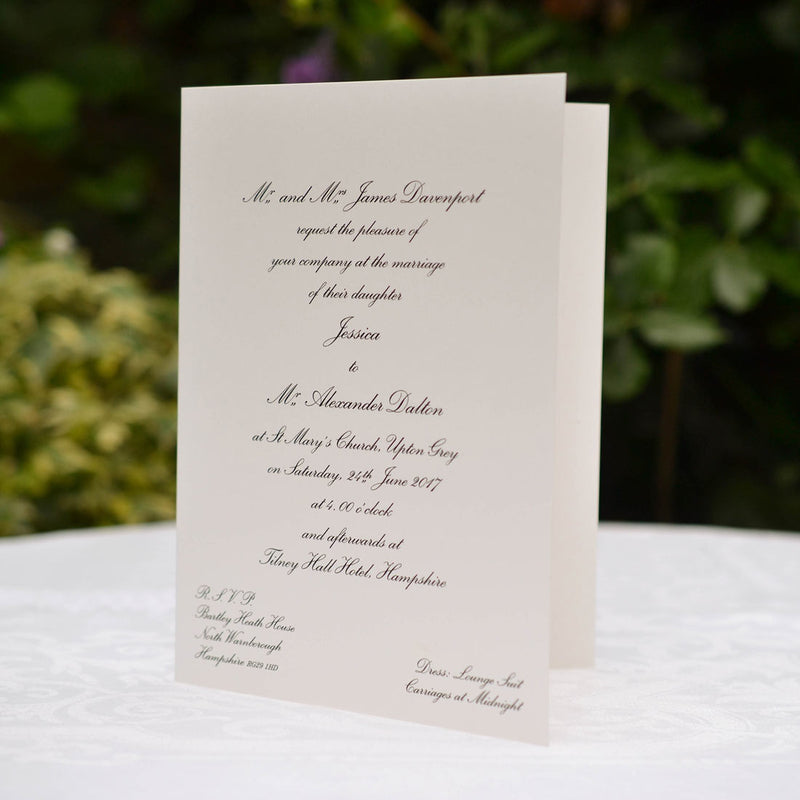 Mr and Mrs James Davenport
request the pleasure of
your company at the marriage
of their daughter
Jessica
to
Mr Alexander Dalton
at St Mary's Church, Upton Grey
on Saturday, 24th June 2017
at 4.00 o'clock
and afterwards at
Tilney Hall Hotel, Hampshire
R.S.V.P.
Bartley Heath House
North Warnborough
Hampshire RG29 1HD
Dress: Lounge Suit
Carriages at Midnight